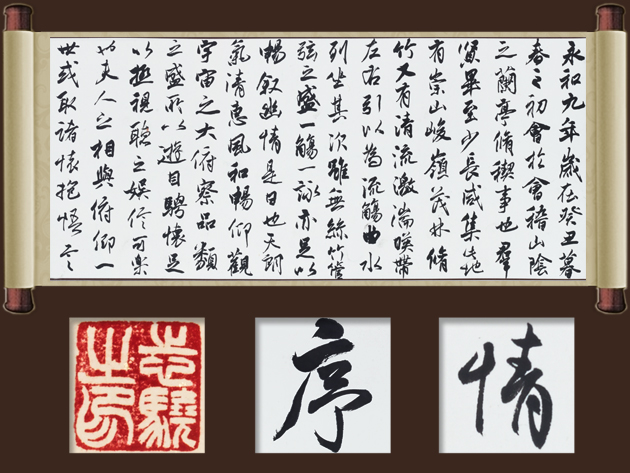 永和九年歲在癸丑暮
春之初會於會稽山陰
之蘭亭脩稧事也群
賢畢至少長咸集此地
有崇山峻嶺茂林脩
竹又有清流激湍暎帶
左右引以為流觴曲水
列坐其次雖無絲竹管
弦之盛一觴一詠亦足以
暢敘幽情是日也天朗
氣清惠風和暢仰觀
宇宙之大俯察品類
之盛所以遊目騁懷足
以極視聽之娛信可樂
也夫人之相與俯仰一
世或取諸懷抱悟言
志驍
之印
序
情